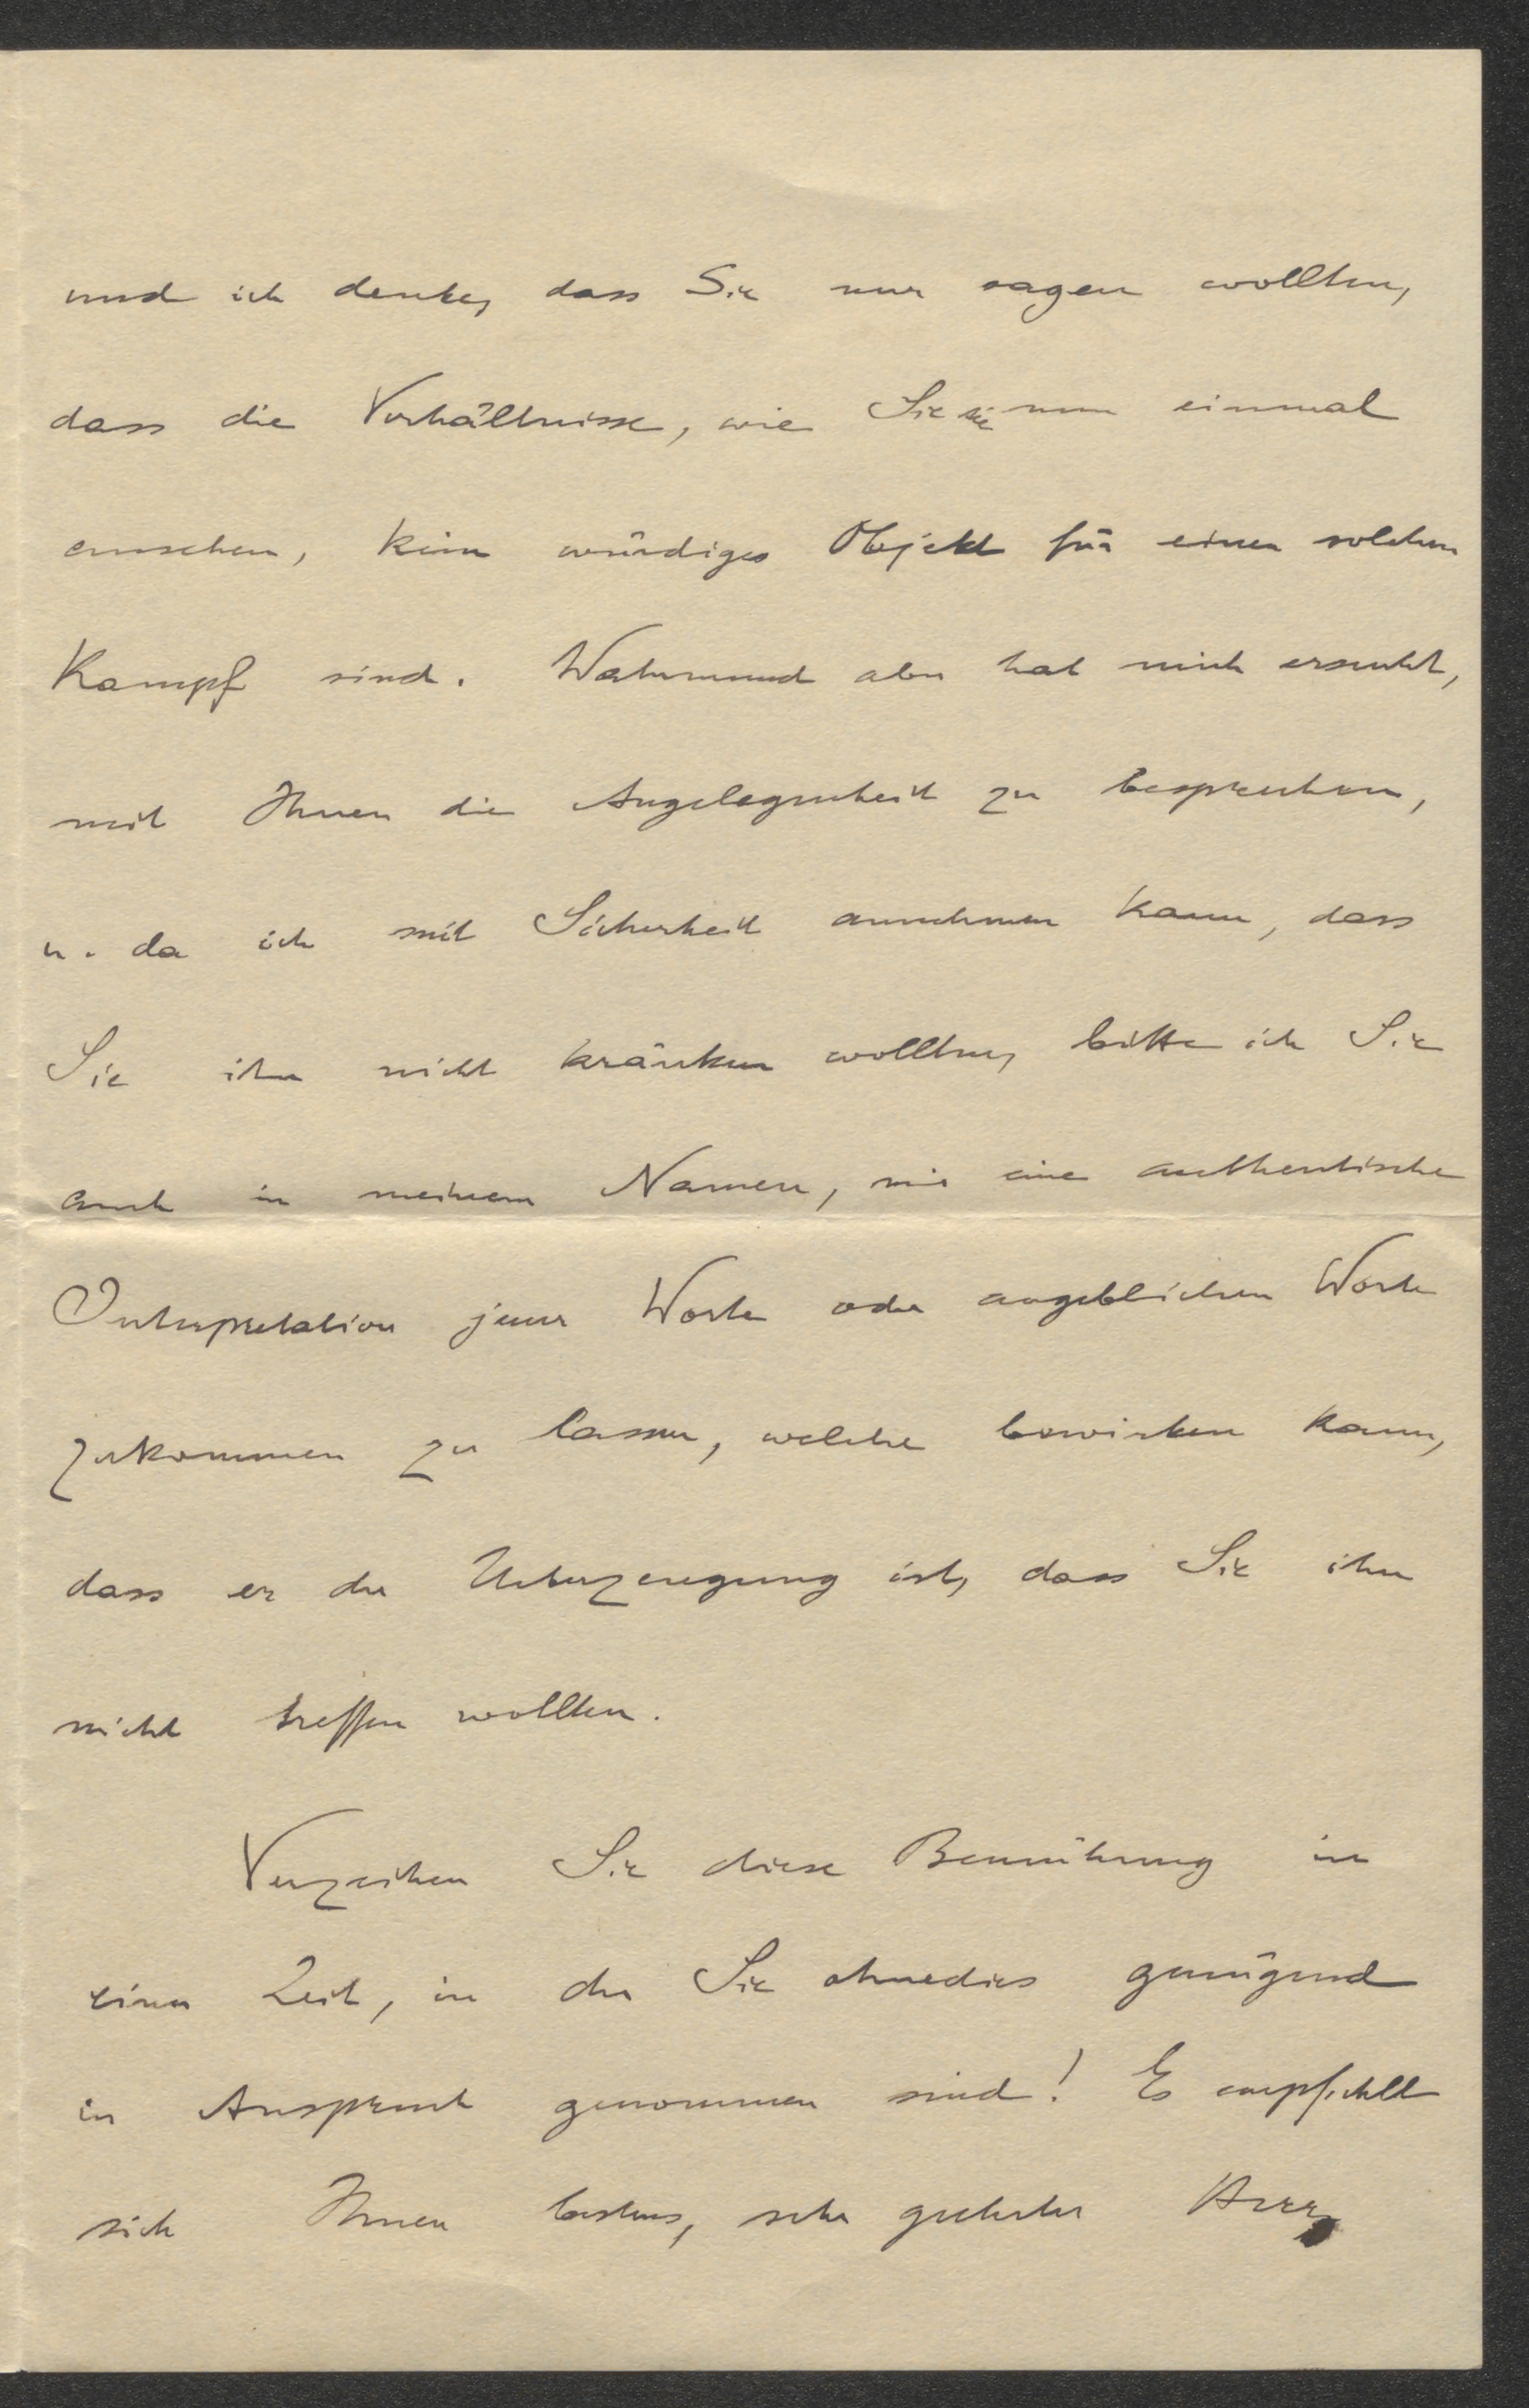 und ich denke, dass Sie nur sagen wollten,
dass die Verhältnisse, wie Sie sie nun einmal
ansehen, kein würdiges Objekt für einen solchen
Kampf sind. Wahrmund aber hat mich ersucht,
mit Ihnen die Angelegenheit zu besprechen,
u. da ich mit Sicherheit annehmen kann, dass
Sie ihn nicht kränken wollten, bitte ich Sie
auch in meinem Namen, mir eine authentische
Interpretation jener Worte oder angeblichen Worte
zukommen zu lassen, welche bewirken kann,
dass er der Ueberzeugung ist, dass Sie ihn
nicht treffen wollten.
Verzeihen Sie diese Bemühung in
einer Zeit, in der Sie ohnedies genügend
in Anspruch genommen sind! Es empfiehlt
sich Ihnen bestens, sehr geehrter Herr